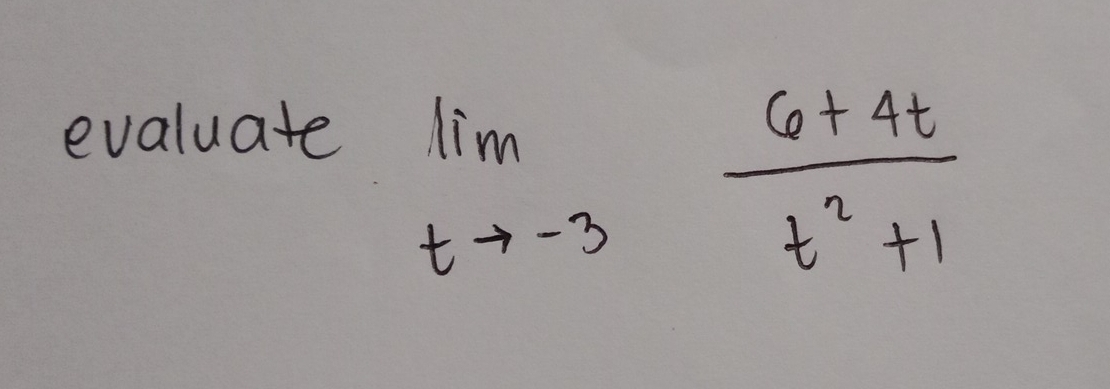 evaluate lim t → -3 6 + 4t / t² + 1